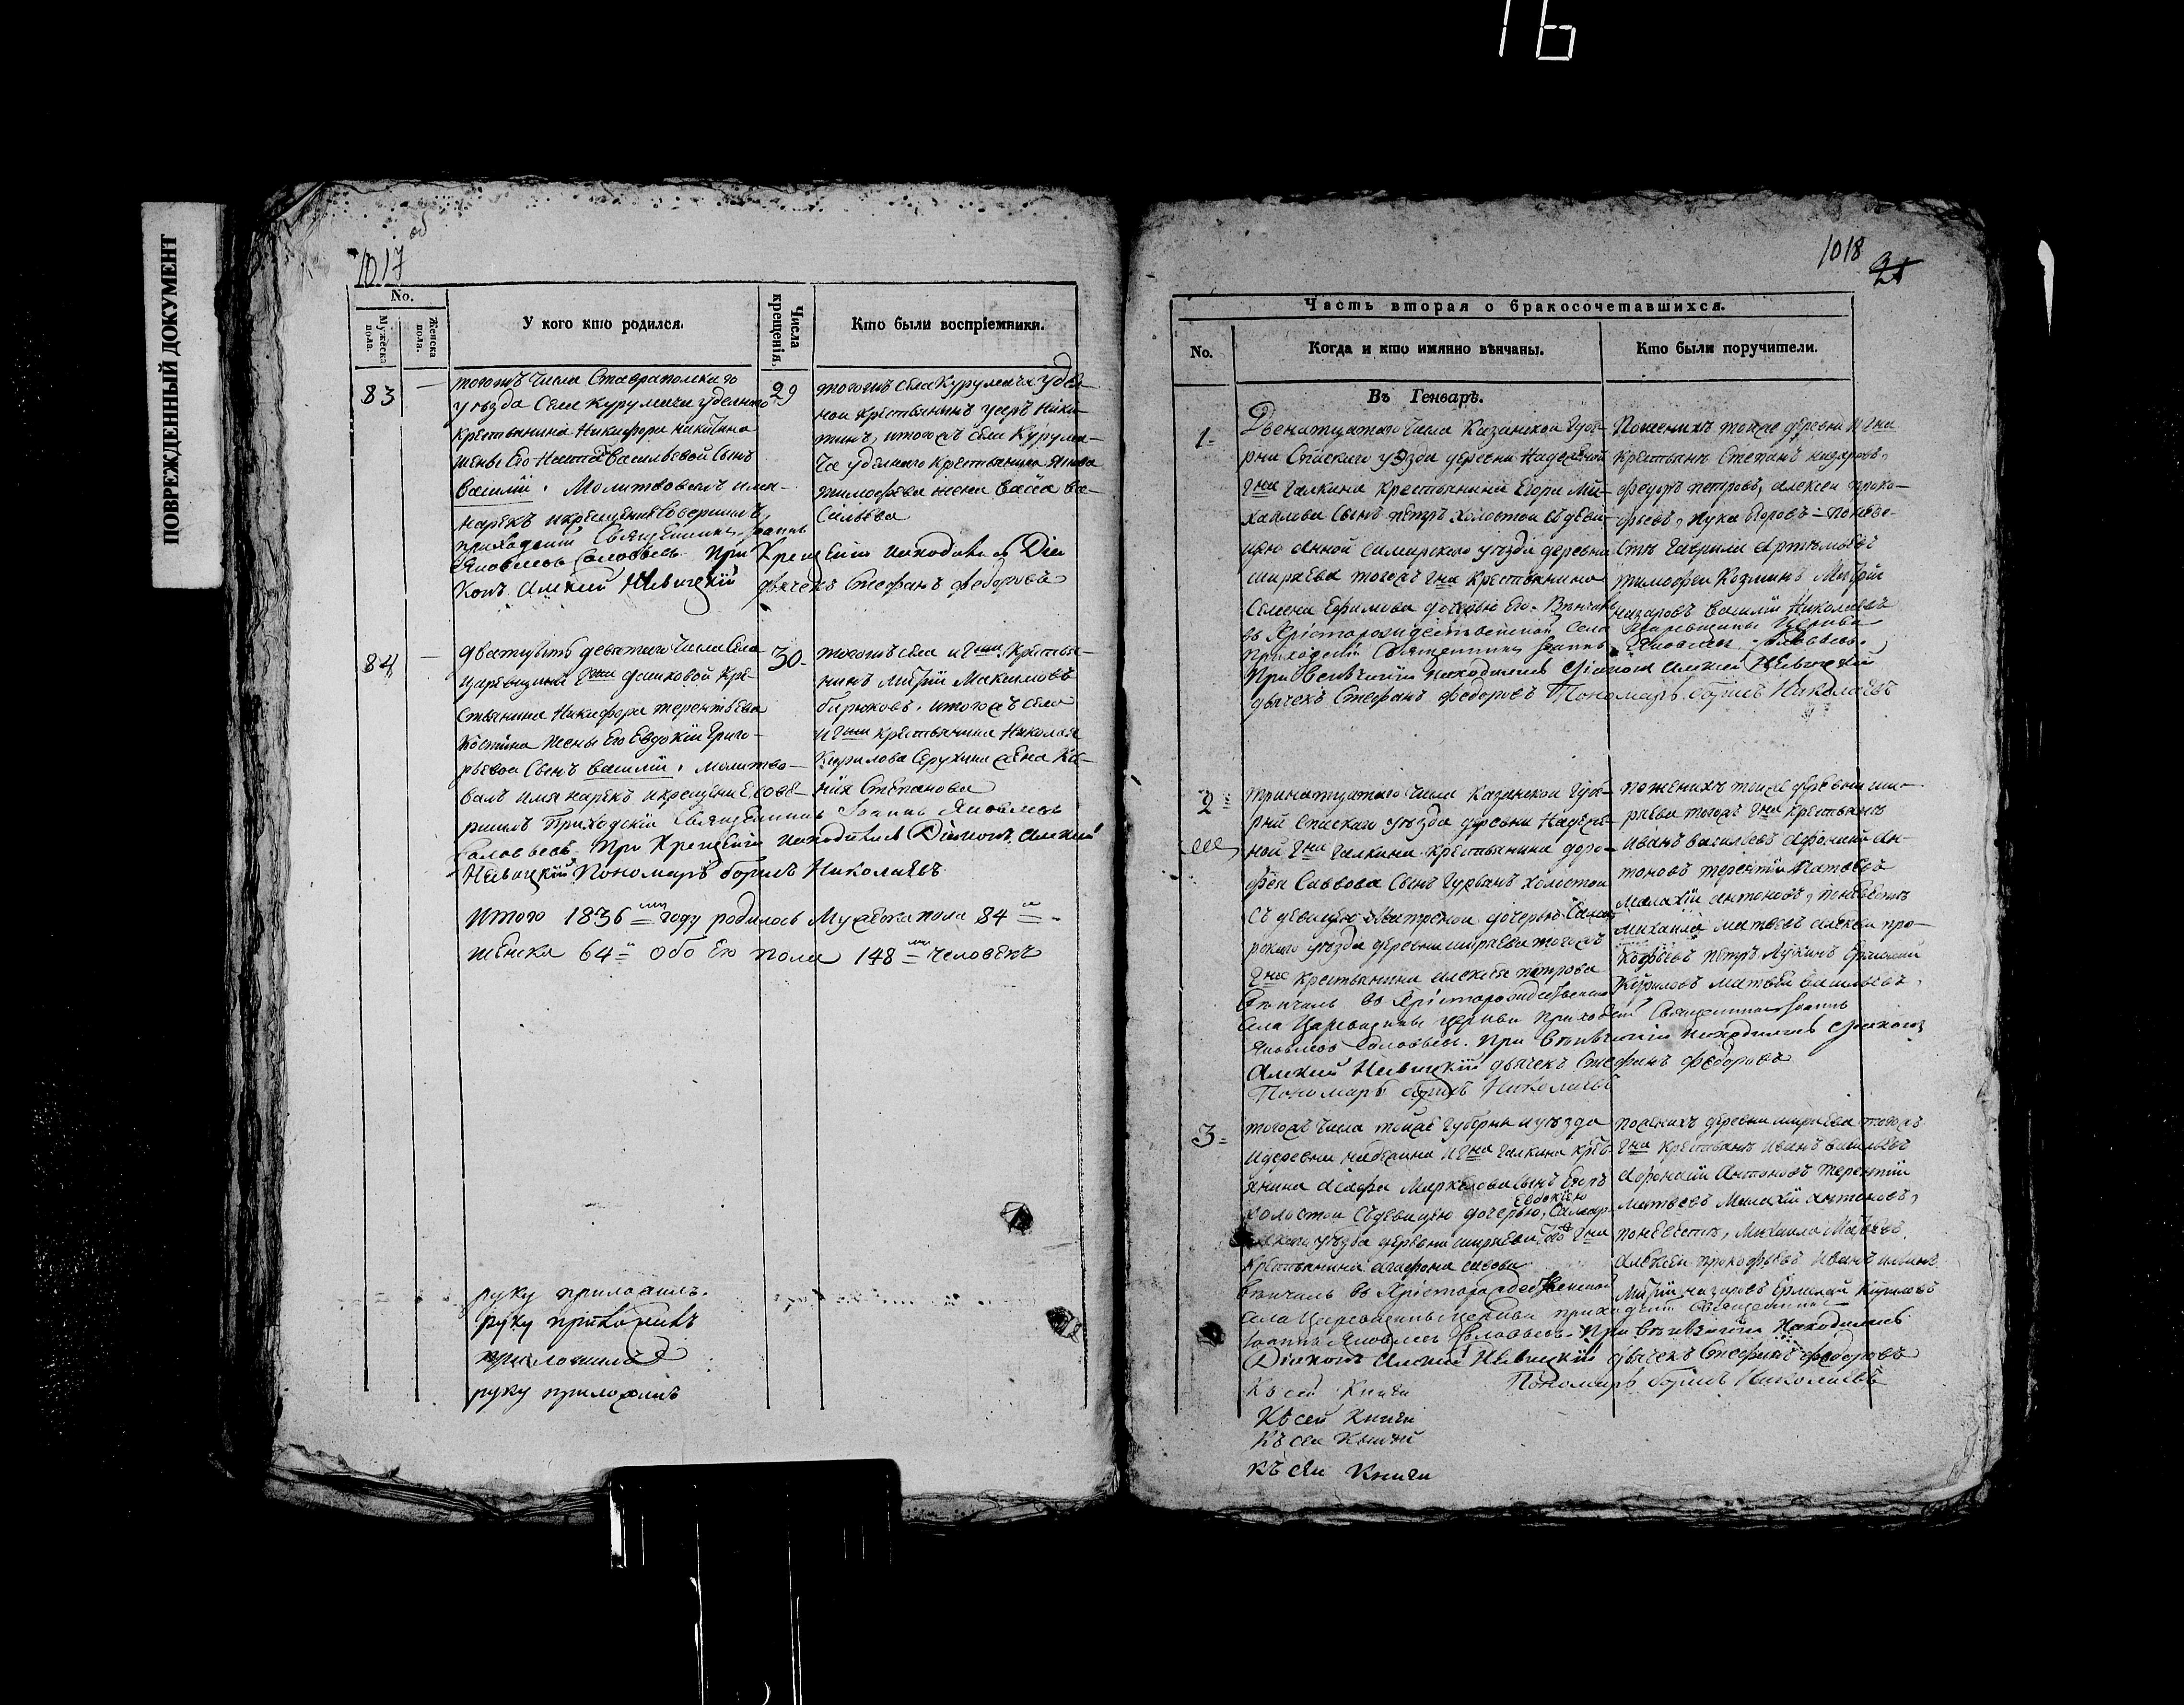 16
ПОВРЕЖДЕННЫЙ ДОКУМЕНТ
1017 об
No.
Мужеска пола.
Женска пола.
У кого кто родился.
Числа крещенія.
Кто были воспріемники.
83
29
тогожъ числа Ставропольскаго
уѣзда села Курумычи удельного
крестьянина Никифора Никитина
жены Его Васильевой сынъ
Василій. Молитвовалъ имя
нарекъ и крещение совершилъ
приходский Священникъ Иоаннъ
Яковлевъ Соловьевъ При Крещении находились Дия
конъ Алексий Невицкий дьячекъ Стефанъ Федоровъ
тогожъ села Курумыча удел
ной крестьянинъ Ники
тинъ, и тогожъ села Курумы
ча удельного крестьянина
тимофеева жена Васа Ва
сильева
84
30
дватцать девятаго числа села
Царевщины Гжи Дашковой Кре
стьянина Никифора терентьева
Костина жены Его Евдокии Григо
рьевой сынъ Василий. молитво
валъ имя нарекъ и крещение сове
ршилъ Приходский Священникъ Иоаннъ Яковлевъ
Соловьевъ. При Крещении находились Диаконъ Алексий
Невицкий Пономарь Борисъ Николаевъ
тогожъ села и Гжи Крестья
нинъ Митрий Максимовъ
бирюковъ. и тогожъ села
и Гжи крестьянина Николая
Кирилова жена Ксе
ния Степанова
Итого 1836 году родилось Мужеска пола 84
женска 64 обо Его пола 148 человекъ
руку приложилъ.
руку приложилъ
приложилъ
руку приложилъ
1018
21
Часть вторая о бракосочетавшихся.
No.
Когда и кто имянно вѣнчаны.
Кто были поручители.
Въ Генварѣ.
1
Двенатцатаго числа Казанской Губе
рни Спаскаго уѣзда деревни Надежиной
Гна Галкина крестьянина Егора Ми
хайлова сынъ Петръ холостой съ деви
цею Анной Самарскаго уезда деревни
ширяева тогожъ Гна Крестьянина
Семена Ефимова дочерью Его. Венчалъ
въ Христорождественской села Царевщины Церкви
Приходский Священникъ Иоаннъ Яковлевъ Соловьевъ.
При Венчании находились Диаконъ Алексий Невицкий
дьячекъ Стефанъ Федоровъ Пономарь Борисъ Николаевъ
По женихе тойже деревни и Гна
крестьяне Степанъ Назаровъ,
Федоръ Петровъ, Алексей Проко
фьевъ, Лука Егоровъ - по неве
сте Гаврила Артемьевъ
тимофей Козминъ Митрий
Назаровъ Василий Николаевъ
2
тринатцатаго числа Казанской Губе
рни Спаскаго уезда деревни Надежи
ной Гна Галкина крестьянина Доро
фея Саввова сынъ Гурьянъ холостой
съ девицею Матреной дочерью Сама
рскаго уезда деревни ширяева тогожъ
Гна крестьянина Алексея Петрова
Венчалъ въ Христорождественской
села Царевщины церкви Приходский Священникъ Иоаннъ
Яковлевъ Соловьевъ. При Венчании находились Диаконъ
Алексий Невицкий дьячекъ Стефанъ Федоровъ
Пономарь Борисъ Николаевъ
по женихе тойже деревни ши
ряева тогожъ Гна крестьяне
Иванъ Васильевъ Афонасий Ан
тоновъ терентий Матвеевъ
Малахий Антоновъ, по невесте
Михаила Матвеевъ Алексей про
кофьевъ Петръ Лукинъ Ермолай
Кириловъ Матвей Васильевъ.
3
тогожъ числа тойже губерни и уезда
и деревни надежина и Гна Галкина крес
янина Маркелова сынъ Егоръ
холостой съ девицею дочерью Евдокиею Самар
скаго уезда деревни ширяева того Гна
крестьянина Агафона
Венчалъ въ Христорождественской
села Царевщины церкви приходский Священникъ
Иоаннъ Яковлевъ Соловьевъ. При Венчании Находились
Диаконъ Алексий Невицкий дьячекъ Стефанъ Федоровъ
Пономарь Борисъ Николаевъ
по женихе деревни ширяева тогожъ
Гна Крестьяне Иванъ Васильевъ
Афонасий Антоновъ Терентий
Матвеевъ Малахий Антоновъ,
по невесте, Михаила Матвеевъ.
Алексей Прокофьевъ Иванъ
Митрий Назаровъ Ермолай Кириловъ
Къ сей Книги
Къ сей Книги
Къ сей Книги
Къ сей Книги